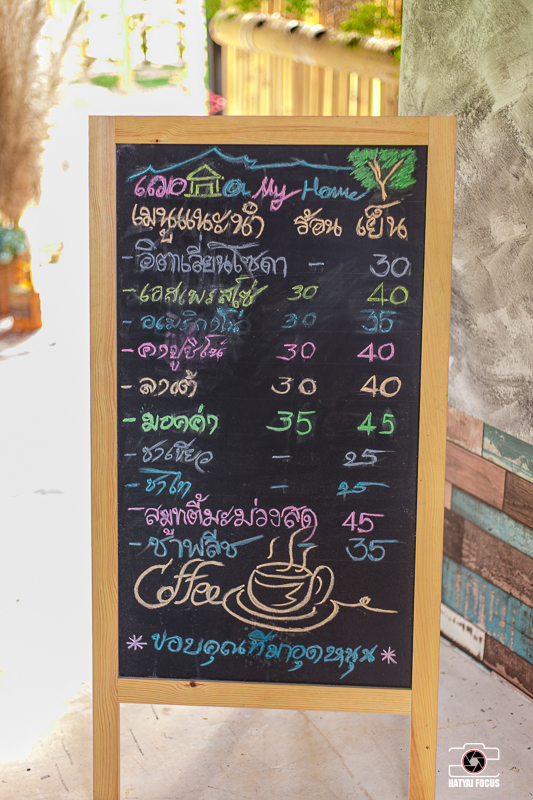 เฌอ on My Home
เมนูแนะนำ ร้อน เย็น
- อิตาเลี่ยนโซดา - 30
- เอสเพรสโซ่ 30 40
- อเมริกาโน่ 30 35
- คาปูชิโน่ 30 40
- ลาเต้ 30 40
- มอคค่า 35 45
- ชาเขียว - 25
- ชาไท - 25
- สมูทตี้มะม่วงสด 45
- ชาพลีช - 35
Coffee
* ขอบคุณที่มาอุดหนุน *
HATYAI FOCUS